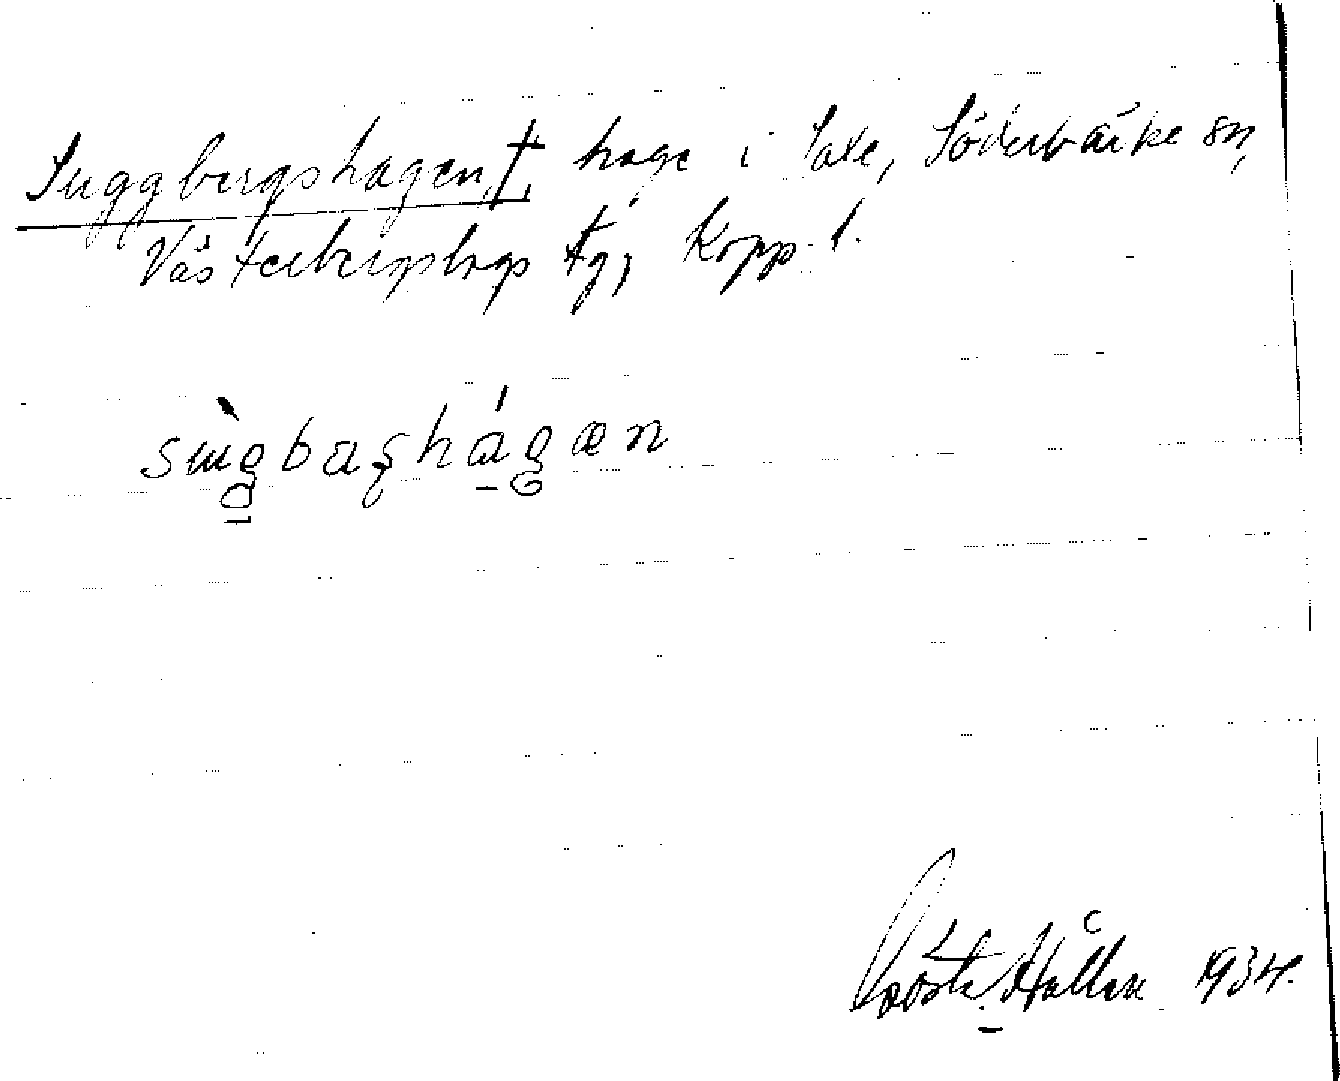 Suggbergshagen,† hage i Saxe, Söderbärke sn,
Västerbergslags tg, Kopp. l.
sùgbaʂhágæn
Gösta Hallén 1934.